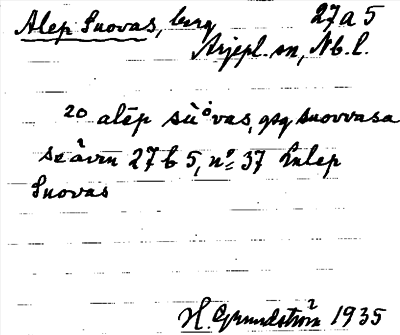 Alep Suovas, berg 27a5
Arjepl. sn, Nb. l.
20 alēp sùovas, gsg suovvasa
se även 27 b 5, nº 37 Lulep
Suovas
H. Grundström 1935